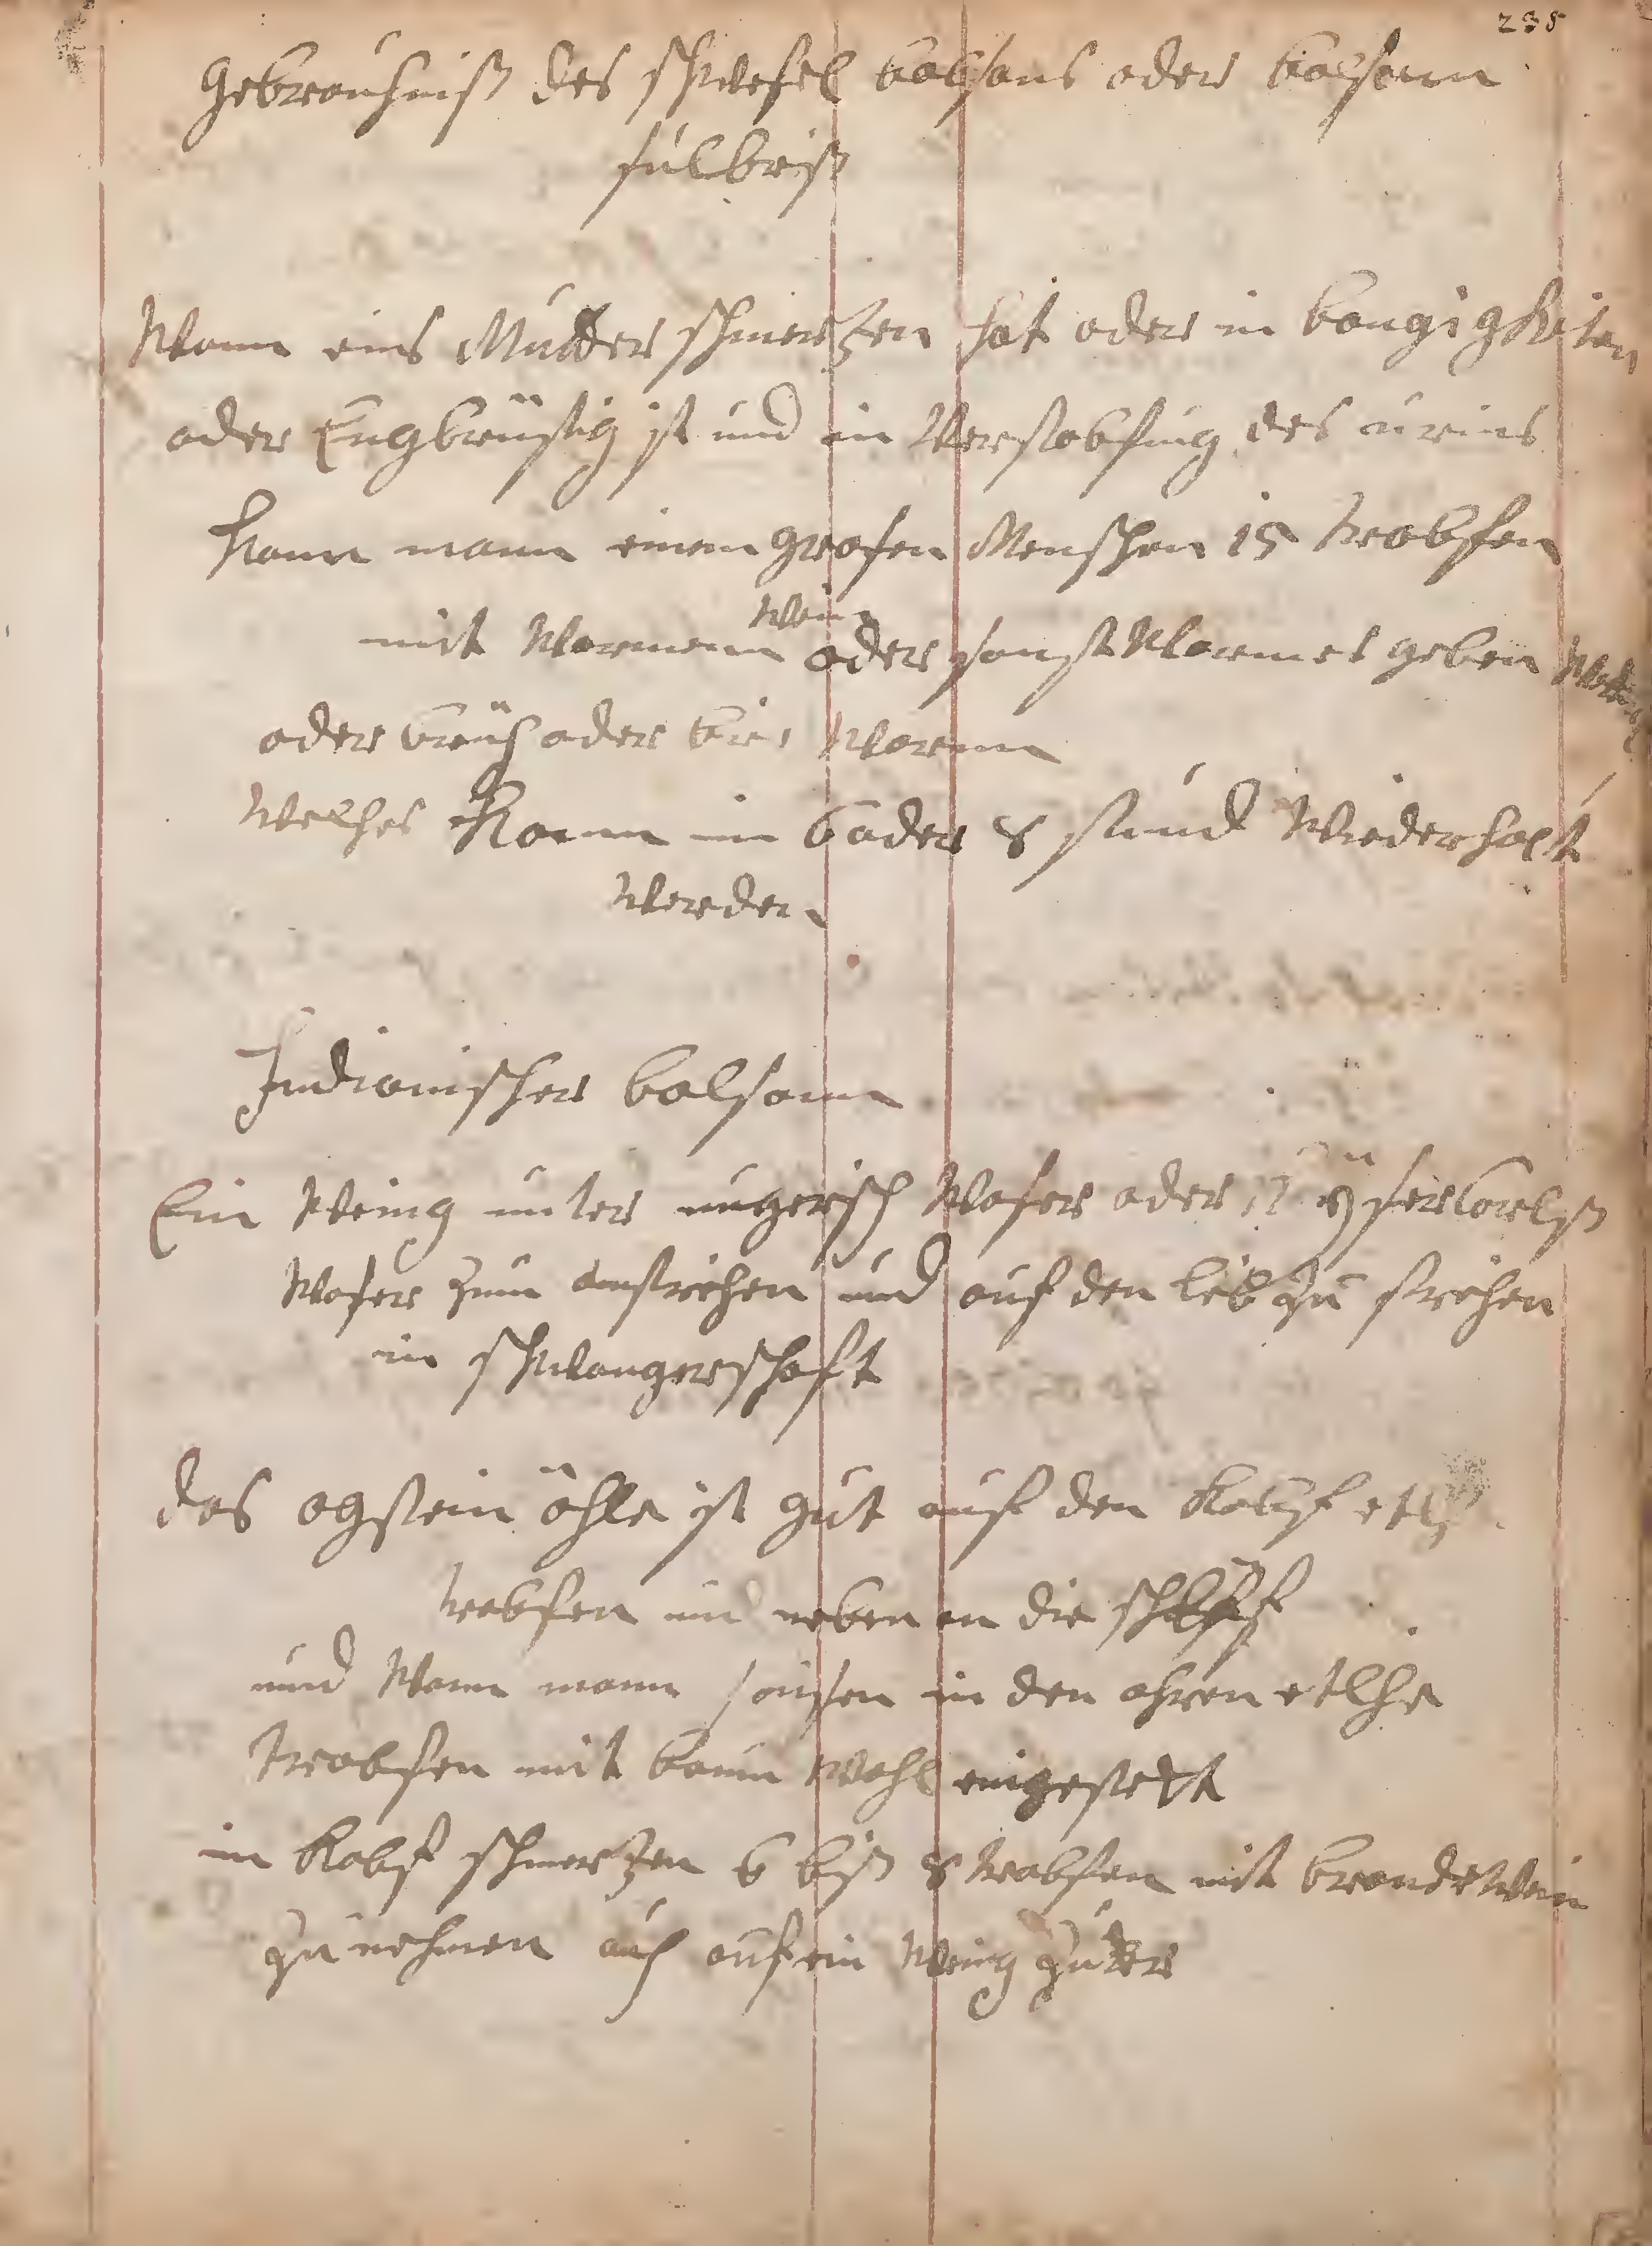 235
Gebrauchniß des schwefel balsans oder balsam
sulbriß
Wann eins Mutter schmertzen hat oder in bangigkeiten
oder Engbrüstig ist und in Verstobfung des urins
kann mann einem grosen Menschen 15 trobfen
mit Warmem wein oder sonst Warmes geben
oder brüh oder bir Warm
Welches kann in 6 oder 8 stund Wiederholt
Werden
Indianischer balsam
Ein Wenig unter ungerisch Waser oder
Waser zum anstrichen und auf den leib zu strichen
in schwangerschaft
das ogstein öhle ist gut auf den kobf
trobfen und neben an die schläff
und Wann mann sausen in den ohren etlche
trobfen mit baum Wohl eingesteckt
in kobf schmertzen 6 biß 8 trobfen mit brandewein
zu nehmen auch auf ein Wenig zucker